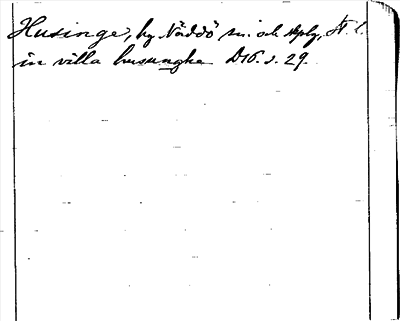 Husinge, by Väddö sn. och skplg, St. l.
in villa husunghe D16. s. 29.